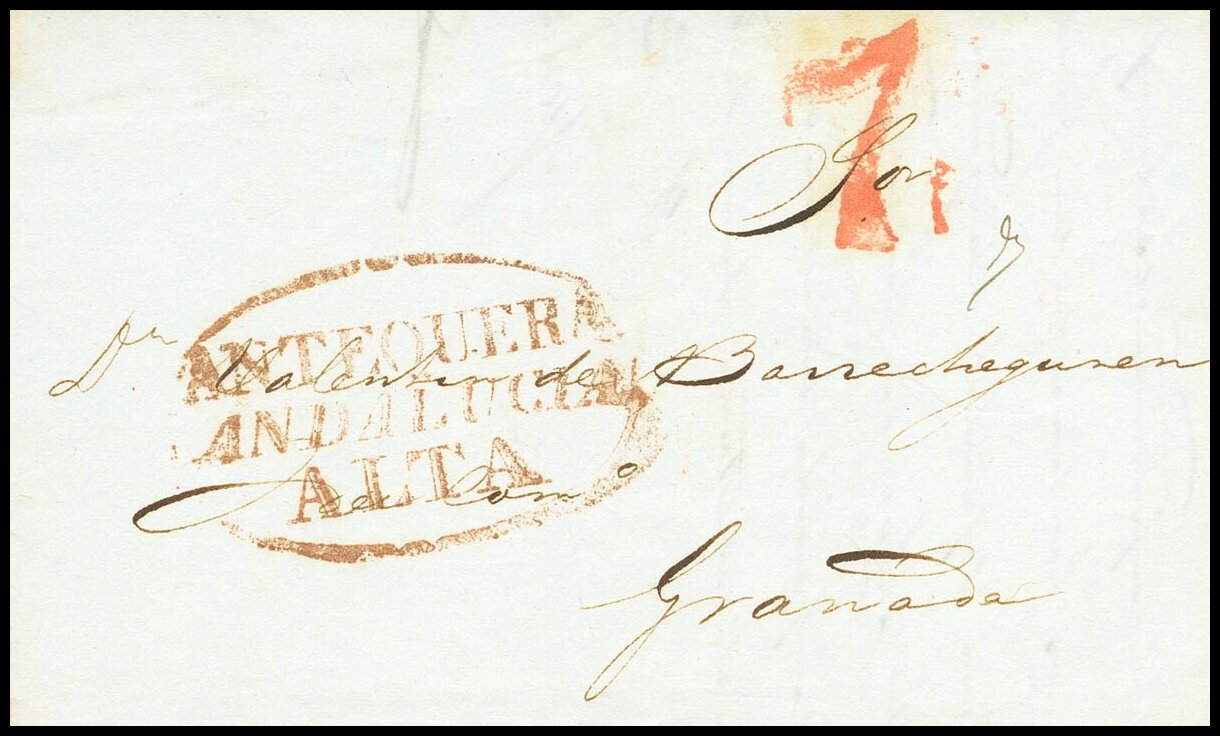 7
Sor
Dn Valentin de Barrecheguren
ANTEQUERA
ANDALUCIA
ALTA
del Como
Granada